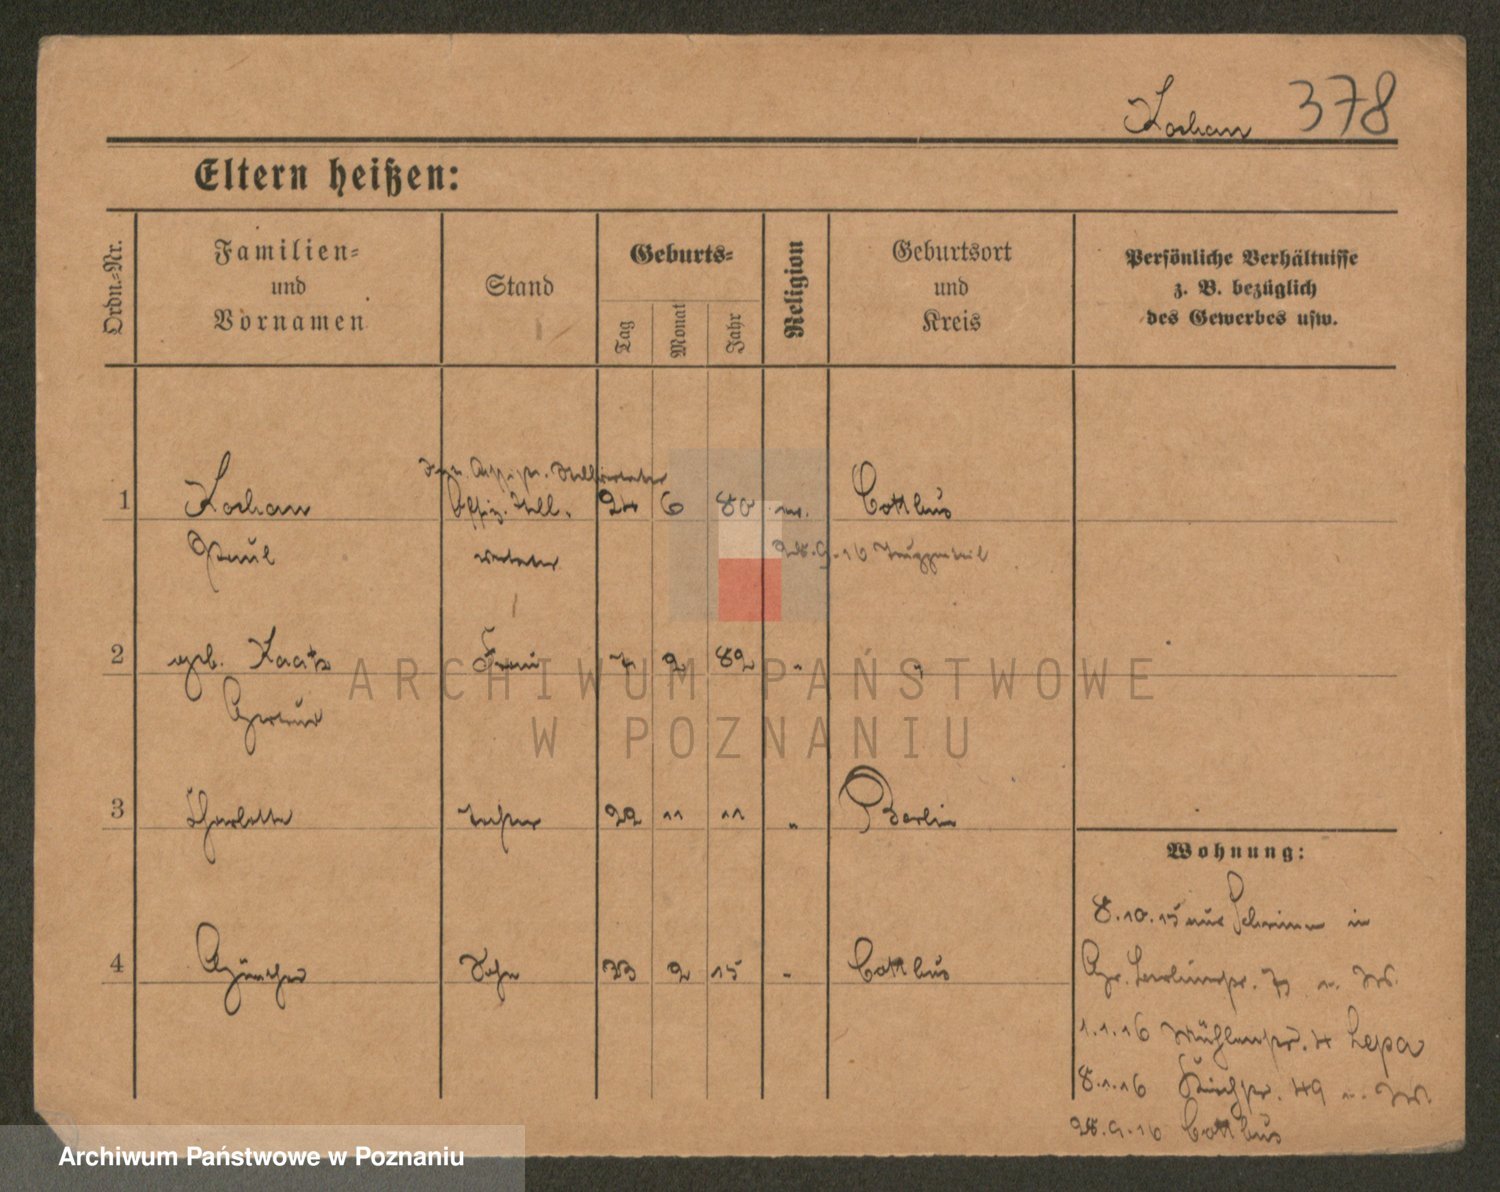 Kochan 378
Eltern heißen:
Ordn.-Nr.
Familien-
und
Vornamen
Stand
Geburts-
Tag
Monat
Jahr
Religion
Geburtsort
und
Kreis
Persönliche Verhältnisse
z. B. bezüglich
des Gewerbes usw.
1 Kochan Offiz. Stell. 24 6 80 Cottbus
Paul vertreter 28.9.16
2 geb. Kaatz Frau 7 2 82 "
3 Charlotte Tochter 22 11 11 " Berlin
Wohnung:
8.10.15 aus Schrimm in
4 Günther Sohn 23 2 15 " Cottbus
1.1.16 Mühlenstr. 4
8.1.16 Kirchstr. 49
28.9.16 Cottbus
ARCHIWUM PAŃSTWOWE
W POZNANIU
Archiwum Państwowe w Poznaniu